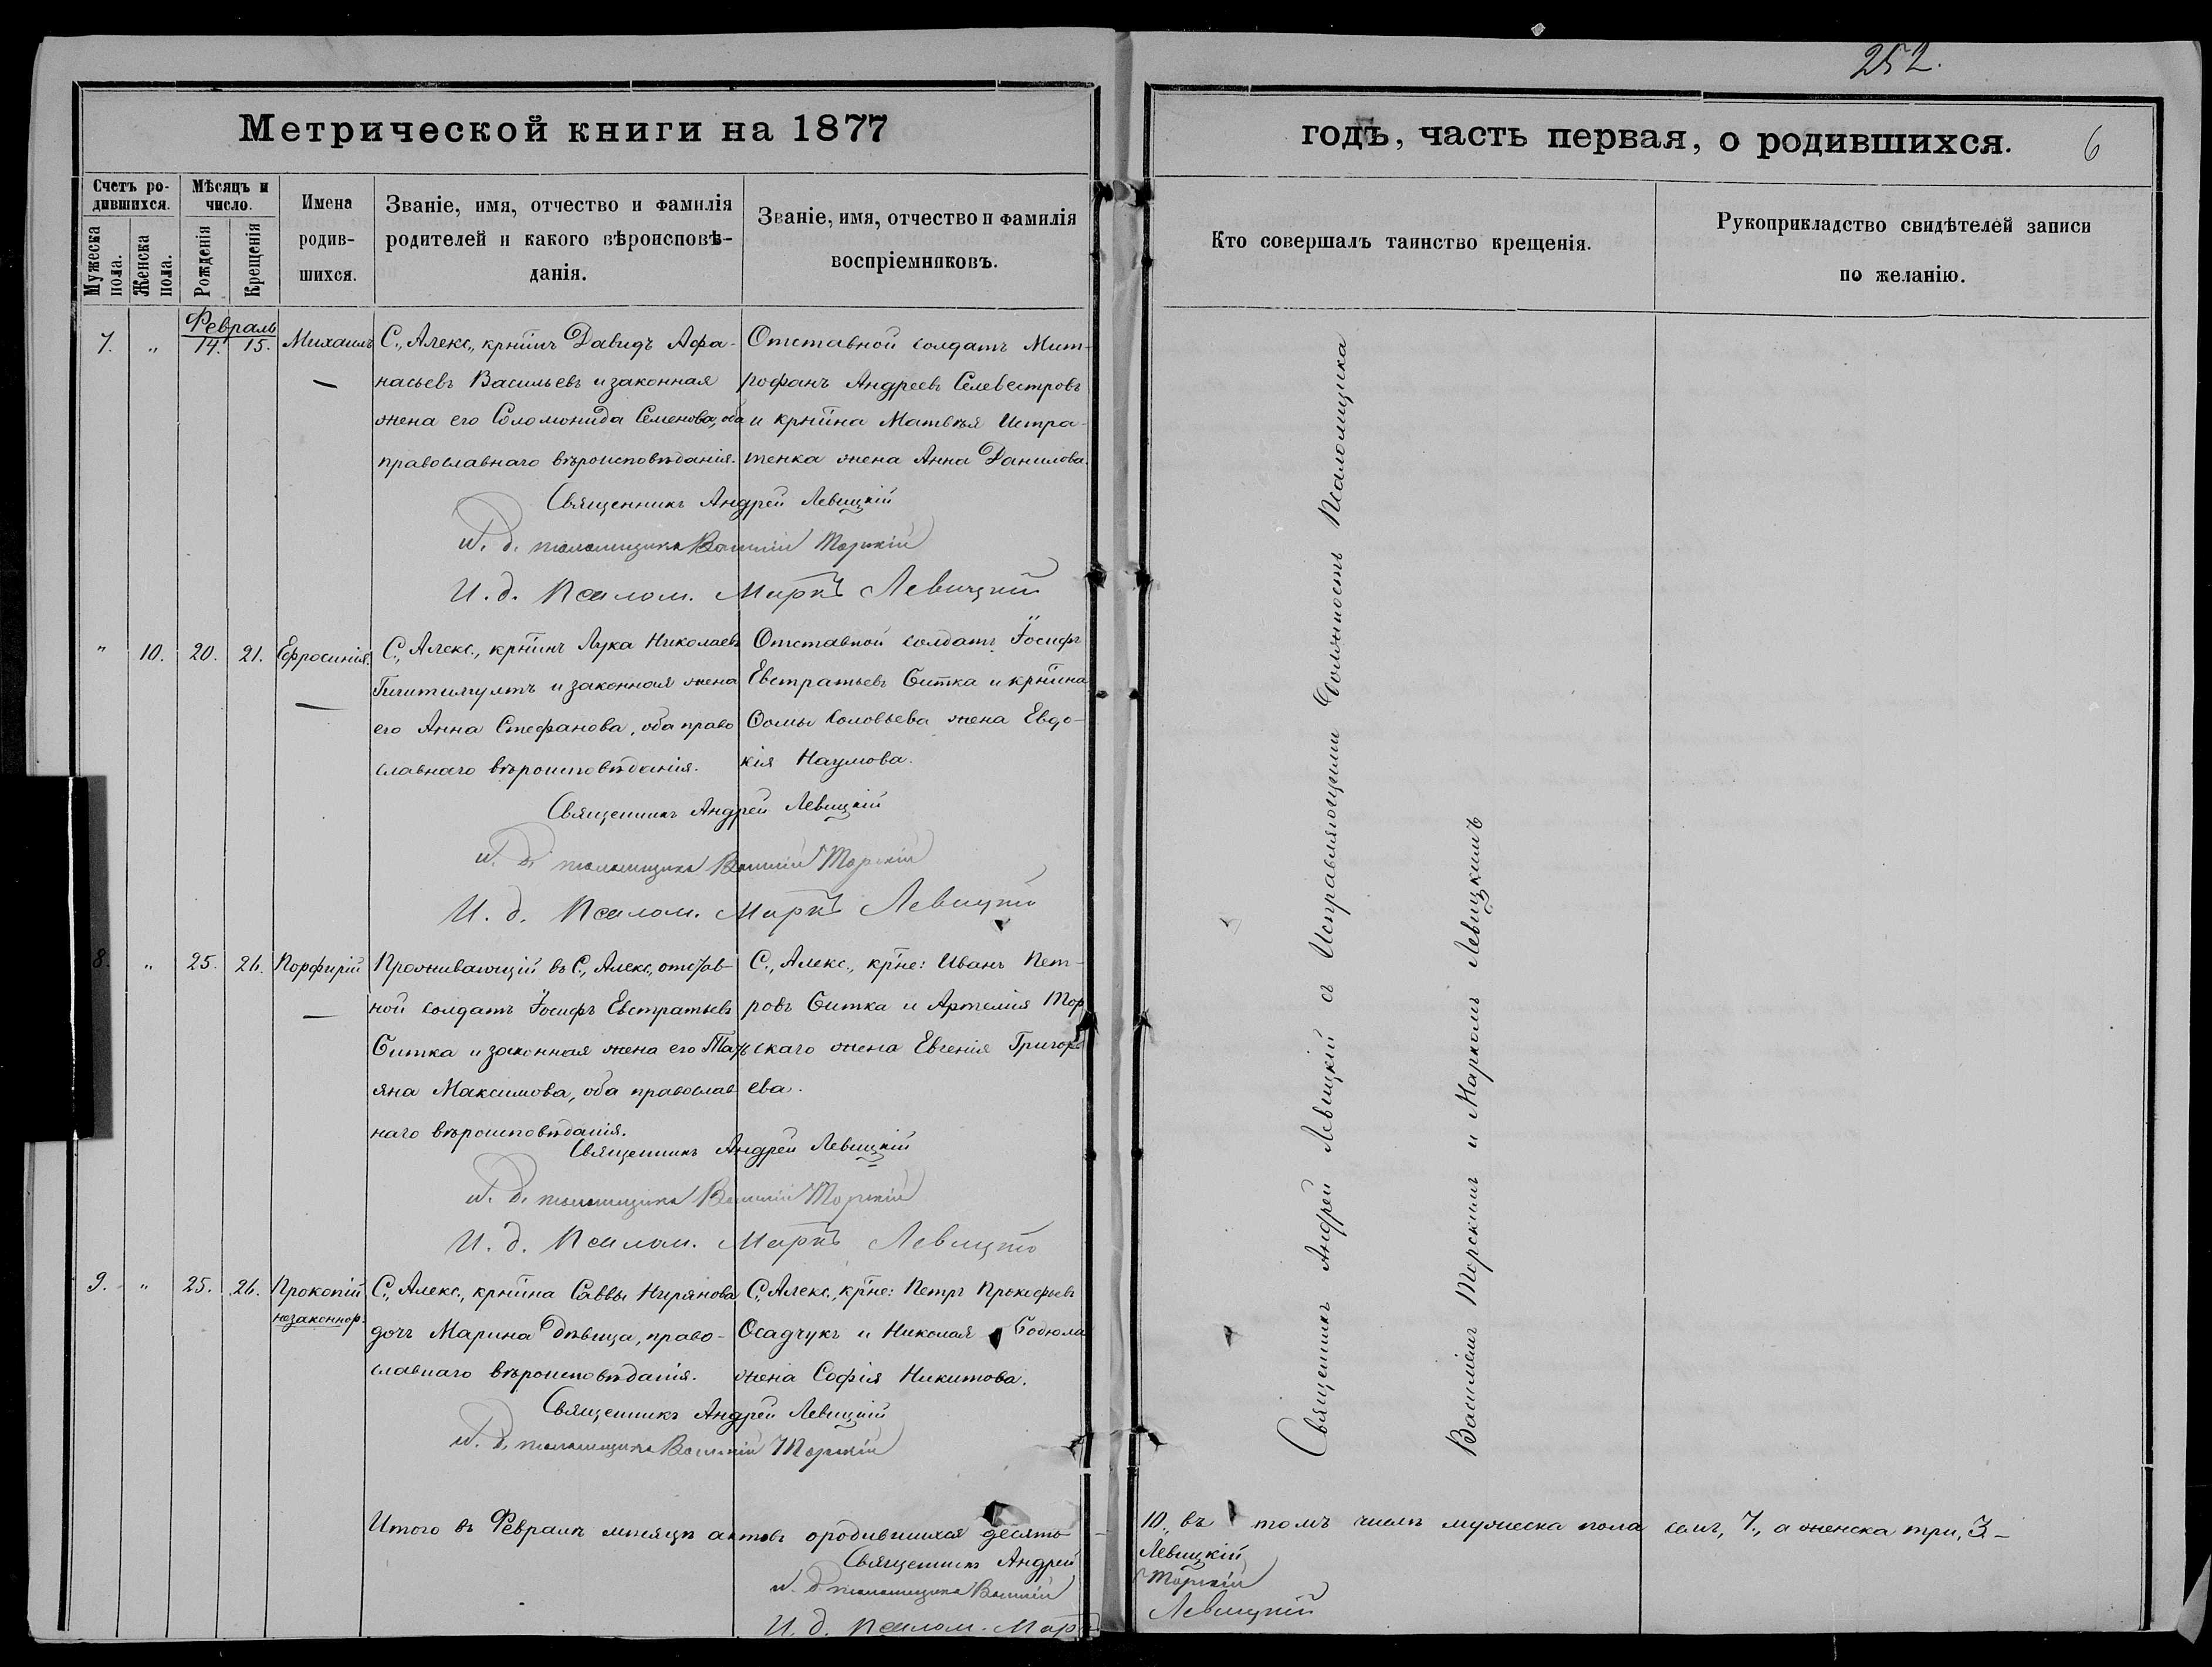 252.
Метрической книги на 1877
годъ, часть первая, о родившихся.
6
Счетъ ро-
дившихся.
Мужеска пола.
Женска пола.
Мѣсяцъ и
число.
Рожденія
Крещенія
Имена
родив-
шихся.
Званіе, имя, отчество и фамилія
родителей и какого вѣроисповѣ-
данія.
Званіе, имя, отчество и фамилія
воспріемниковъ.
Кто совершалъ таинство крещенія.
Рукоприкладство свидѣтелей записи
по желанію.
Февраль
7. " 14. 15. Михаилъ
С., Алекс., крнинъ Давидъ Афа-
насьевъ Васильевъ и законная
жена его Соломонида Семенова, оба
православнаго вѣроисповѣданія.
Отставной солдатъ Мит-
рофанъ Андреевъ Селевестровъ
и крнина Матвѣя Истра-
тенка жена Анна Данилова.
Священникъ Андрей Левицкій
И. д. псаломщика Василій Торскій
И. д. Псалом. Маркъ Левицкій
" 10. 20. 21. Ефросинія.
С., Алекс., крнинъ Лука Николаевъ
и законная жена
его Анна Стефанова, оба право
славнаго вѣроисповѣданія.
Отставной солдатъ Іосифъ
Евстратьевъ Ситка и крнина
Ѳомы Соловьева жена Евдо-
кія Наумова.
Священникъ Андрей Левицкій
И. д. псаломщика Василій Торскій
И. д. Псалом. Маркъ Левицкій
8. " 25. 26. Порфирій
Проживающій въ С., Алекс., отстав-
ной солдатъ Іосифъ Евстратьевъ
Ситка и законная жена его Тать
яна Максимова, оба православ
наго вѣроисповѣданія.
С., Алекс., крне: Иванъ Пет-
ровъ Ситка и Артемія Тор
скаго жена Евгенія Григорь
ева.
Священникъ Андрей Левицкій
И. д. псаломщика Василій Торскій
И. д. Псалом. Маркъ Левицкій
9. " 25. 26. Прокопій
незаконнор.
С., Алекс., крнина Саввы
дочь Марина дѣвица, право-
славнаго вѣроисповѣданія.
С., Алекс., крне: Петръ Прокофьевъ
Осадчукъ и Николая Бодюла
жена Софія Никитова.
Священникъ Андрей Левицкій
И. д. псаломщика Василій Торскій
Священникъ Андрей Левицкій съ Исправляющими Должность Псаломщика
Василіемъ Торскимъ и Маркомъ Левицкимъ
Итого въ Февралѣ мѣсяцѣ актовъ о родившихся десять 10., въ томъ числѣ мужеска пола семь, 7., а женска три, 3. –
Священникъ Андрей Левицкій
И. д. псаломщика Василій Торскій
И. д. Псалом. Маркъ Левицкій